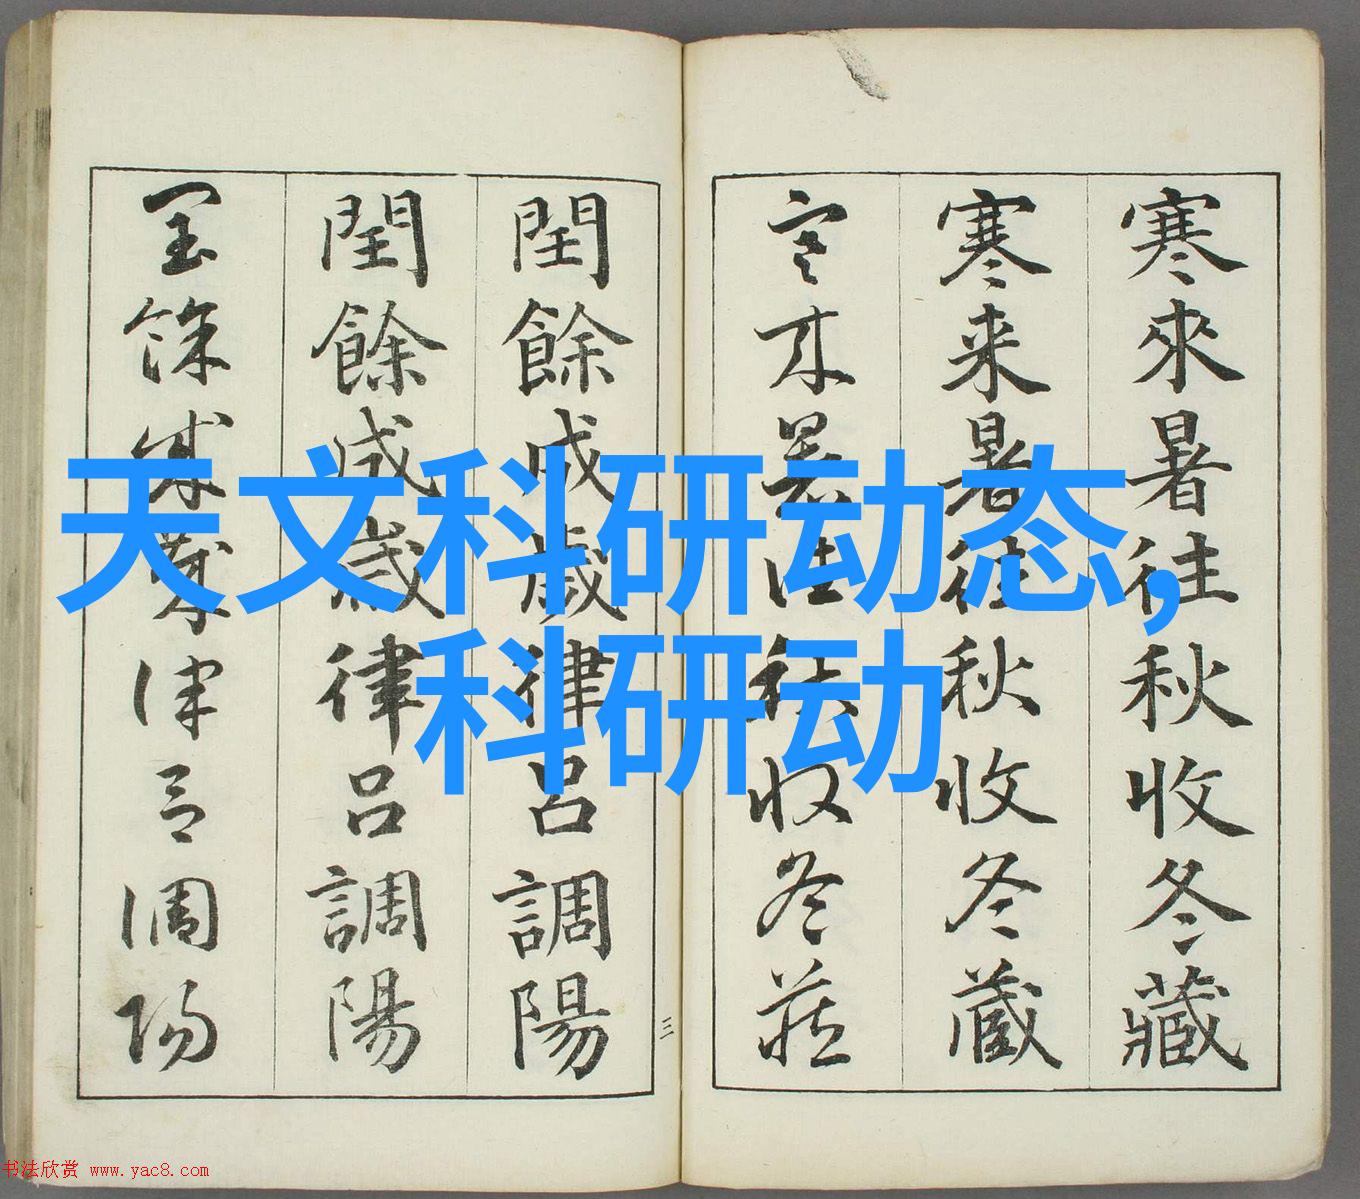 寒來暑往秋收冬藏
寒来暑往秋收冬蔵
寒来暑往秋收冬藏
閏餘成歲律呂調陽
閏餘成歲律呂調陽
閏餘成歲律呂調陽
三
天文科研动态,
科研动
书法欣赏 www.yac8.com